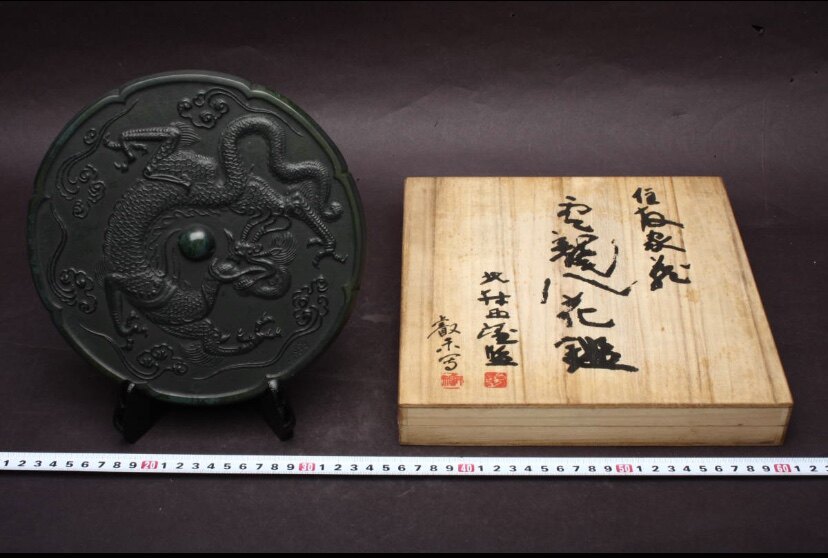 住友家蔵
雲龍八花鑑
北村西望監
叡 写
1 2 3 4 5 6 7 8 9 20 1 2 3 4 5 6 7 8 9 30 1 2 3 4 5 6 7 8 9 40 1 2 3 4 5 6 7 8 9 50 1 2 3 4 5 6 7 8 9 60 1 2